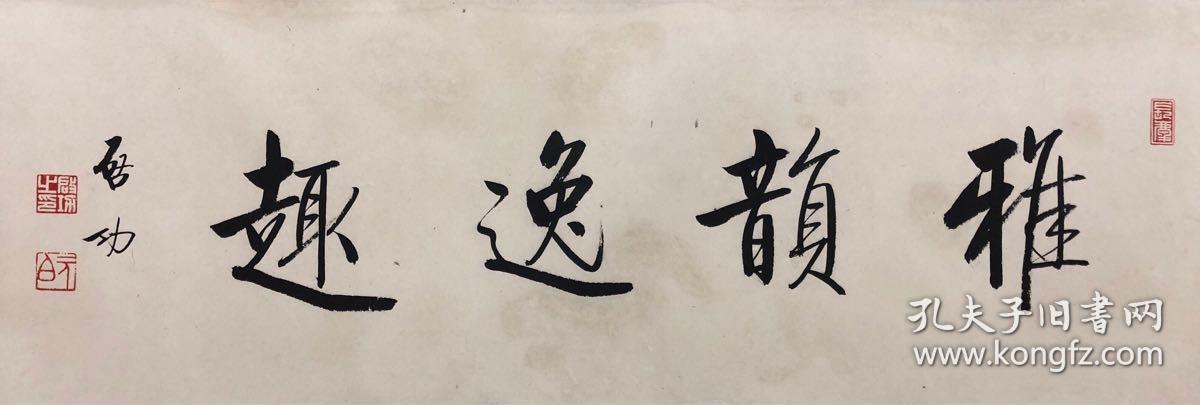 雅韻逸趣
啓功
孔夫子旧书网
www.kongfz.com